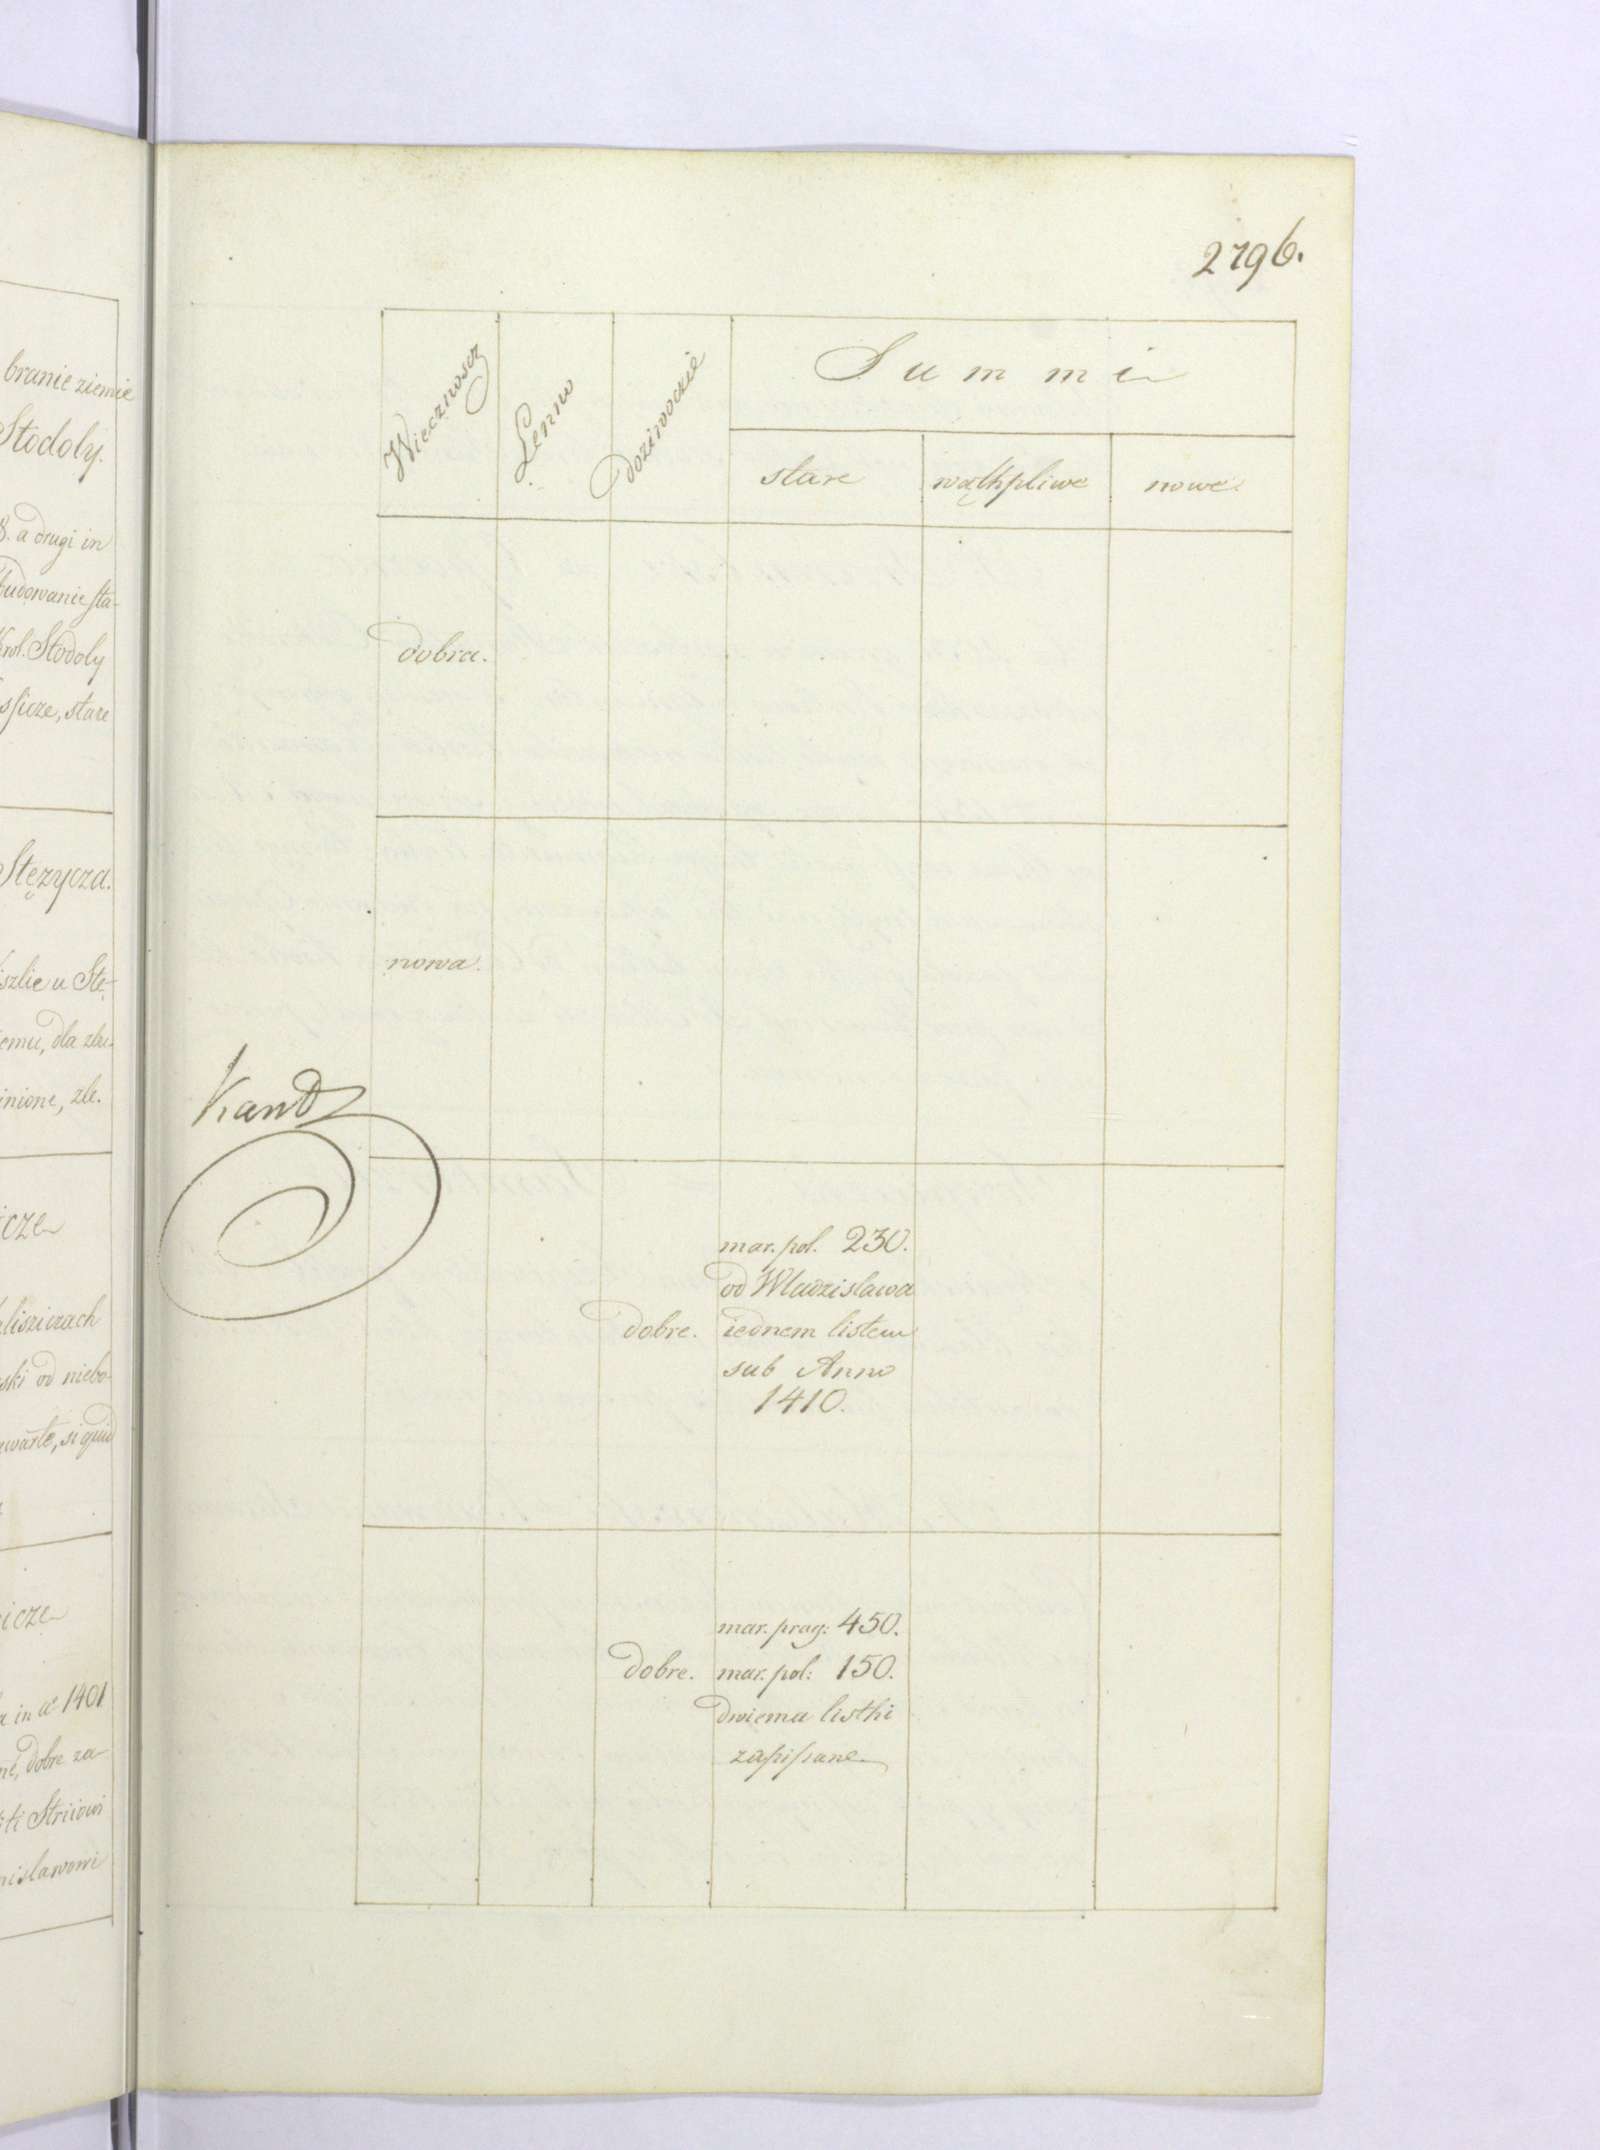 branie ziemie
Stodoly.
8. a drugi in
budowanie sta-
Krol. Stodoly
ssicze, stare
Stęzycza.
iszlie u Stę-
emu, dla zbu-
inione, zle.
icze
lisziczach
ski od niebo-
warte, si quid
icze
a in a° 1401
ne, dobre za-
iti Striiowi
nislawowi
2796.
Wiecznoscz
Lenno
Doziwoczie
Summi
stare
wąthpliwe
nowe
dobra.
nowa.
Kandz
mar. pol. 230.
od Wladzislawa
dobre. iednem listem
sub Anno
1410.
mar. prag: 450.
dobre. mar. pol: 150.
dwiema listhi
zapissane